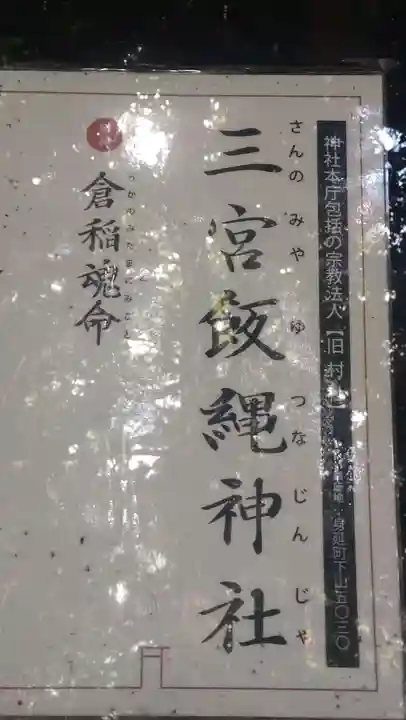 神社本庁包括の宗教法人【旧 村社】
身延町下山五〇三〇
さんのみやゆつなじんじゃ
三宮飯縄神社
うかのみたまのみこと
倉稲魂命